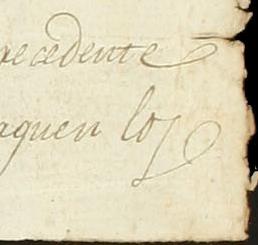 recedente
aguen los